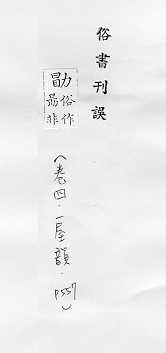 俗書刊誤
勖俗作勗非
(卷四.一屋韻.P557)